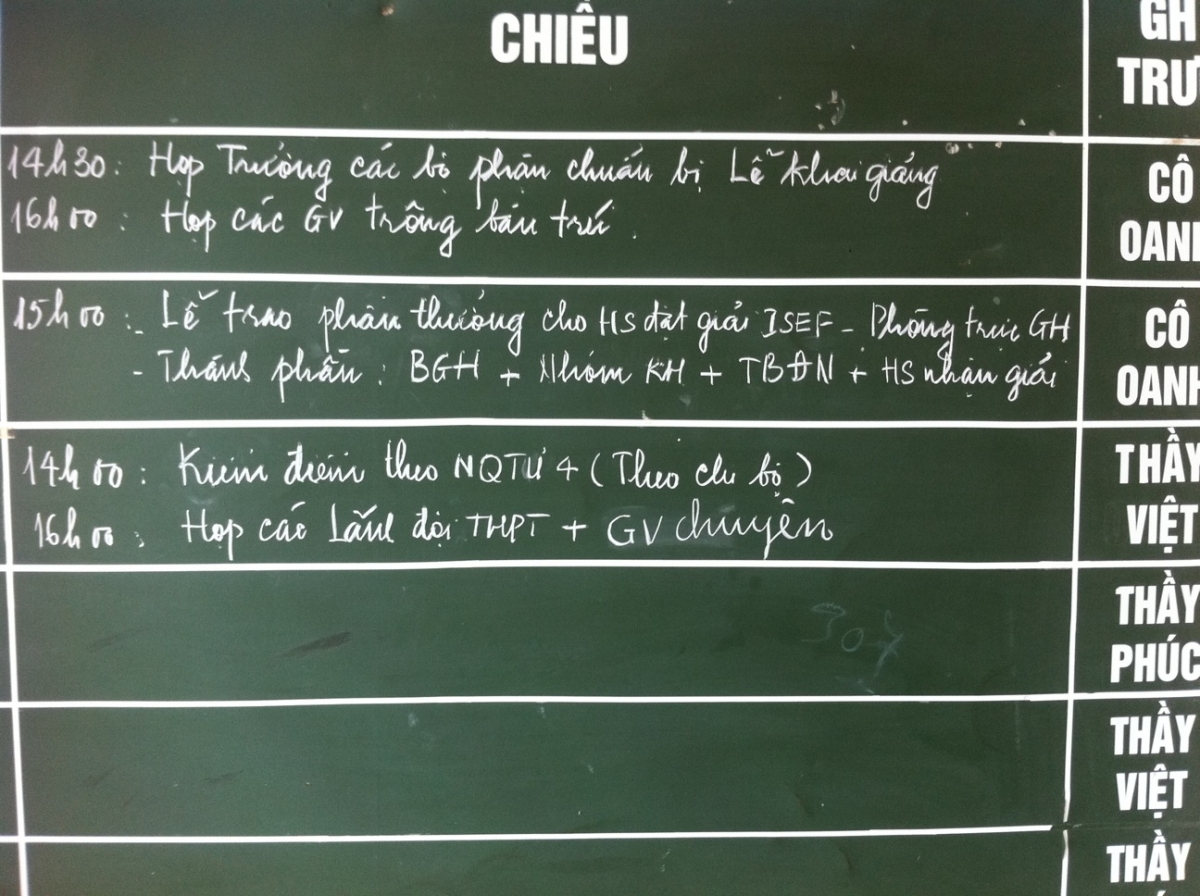 CHIỀU
GH
TRƯ
14h30: Họp Trưởng các bộ phận chuẩn bị Lễ khai giảng
16h00: Họp các GV trông bán trú.
CÔ
OANH
15h00:- Lễ trao phần thưởng cho HS đạt giải ISEF - Phòng trực GH
- Thành phần: BGH + Nhóm KH + TBAN + HS nhận giải
CÔ
OANH
14h00: Kiểm điểm theo NQTƯ 4 (Theo chi bộ)
16h00: Họp các Lãnh đội THPT + GV chuyên
THẦY
VIỆT
THẦY
PHÚC
THẦY
VIỆT
THẦY